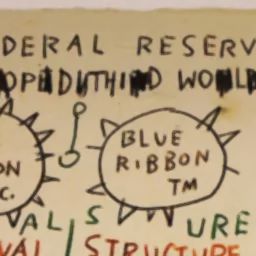 DERAL RESERV
THIRD WORLD
BLUE
RIBBON
TM
ON
C.
VAL S URE
VAL STRUCTURE